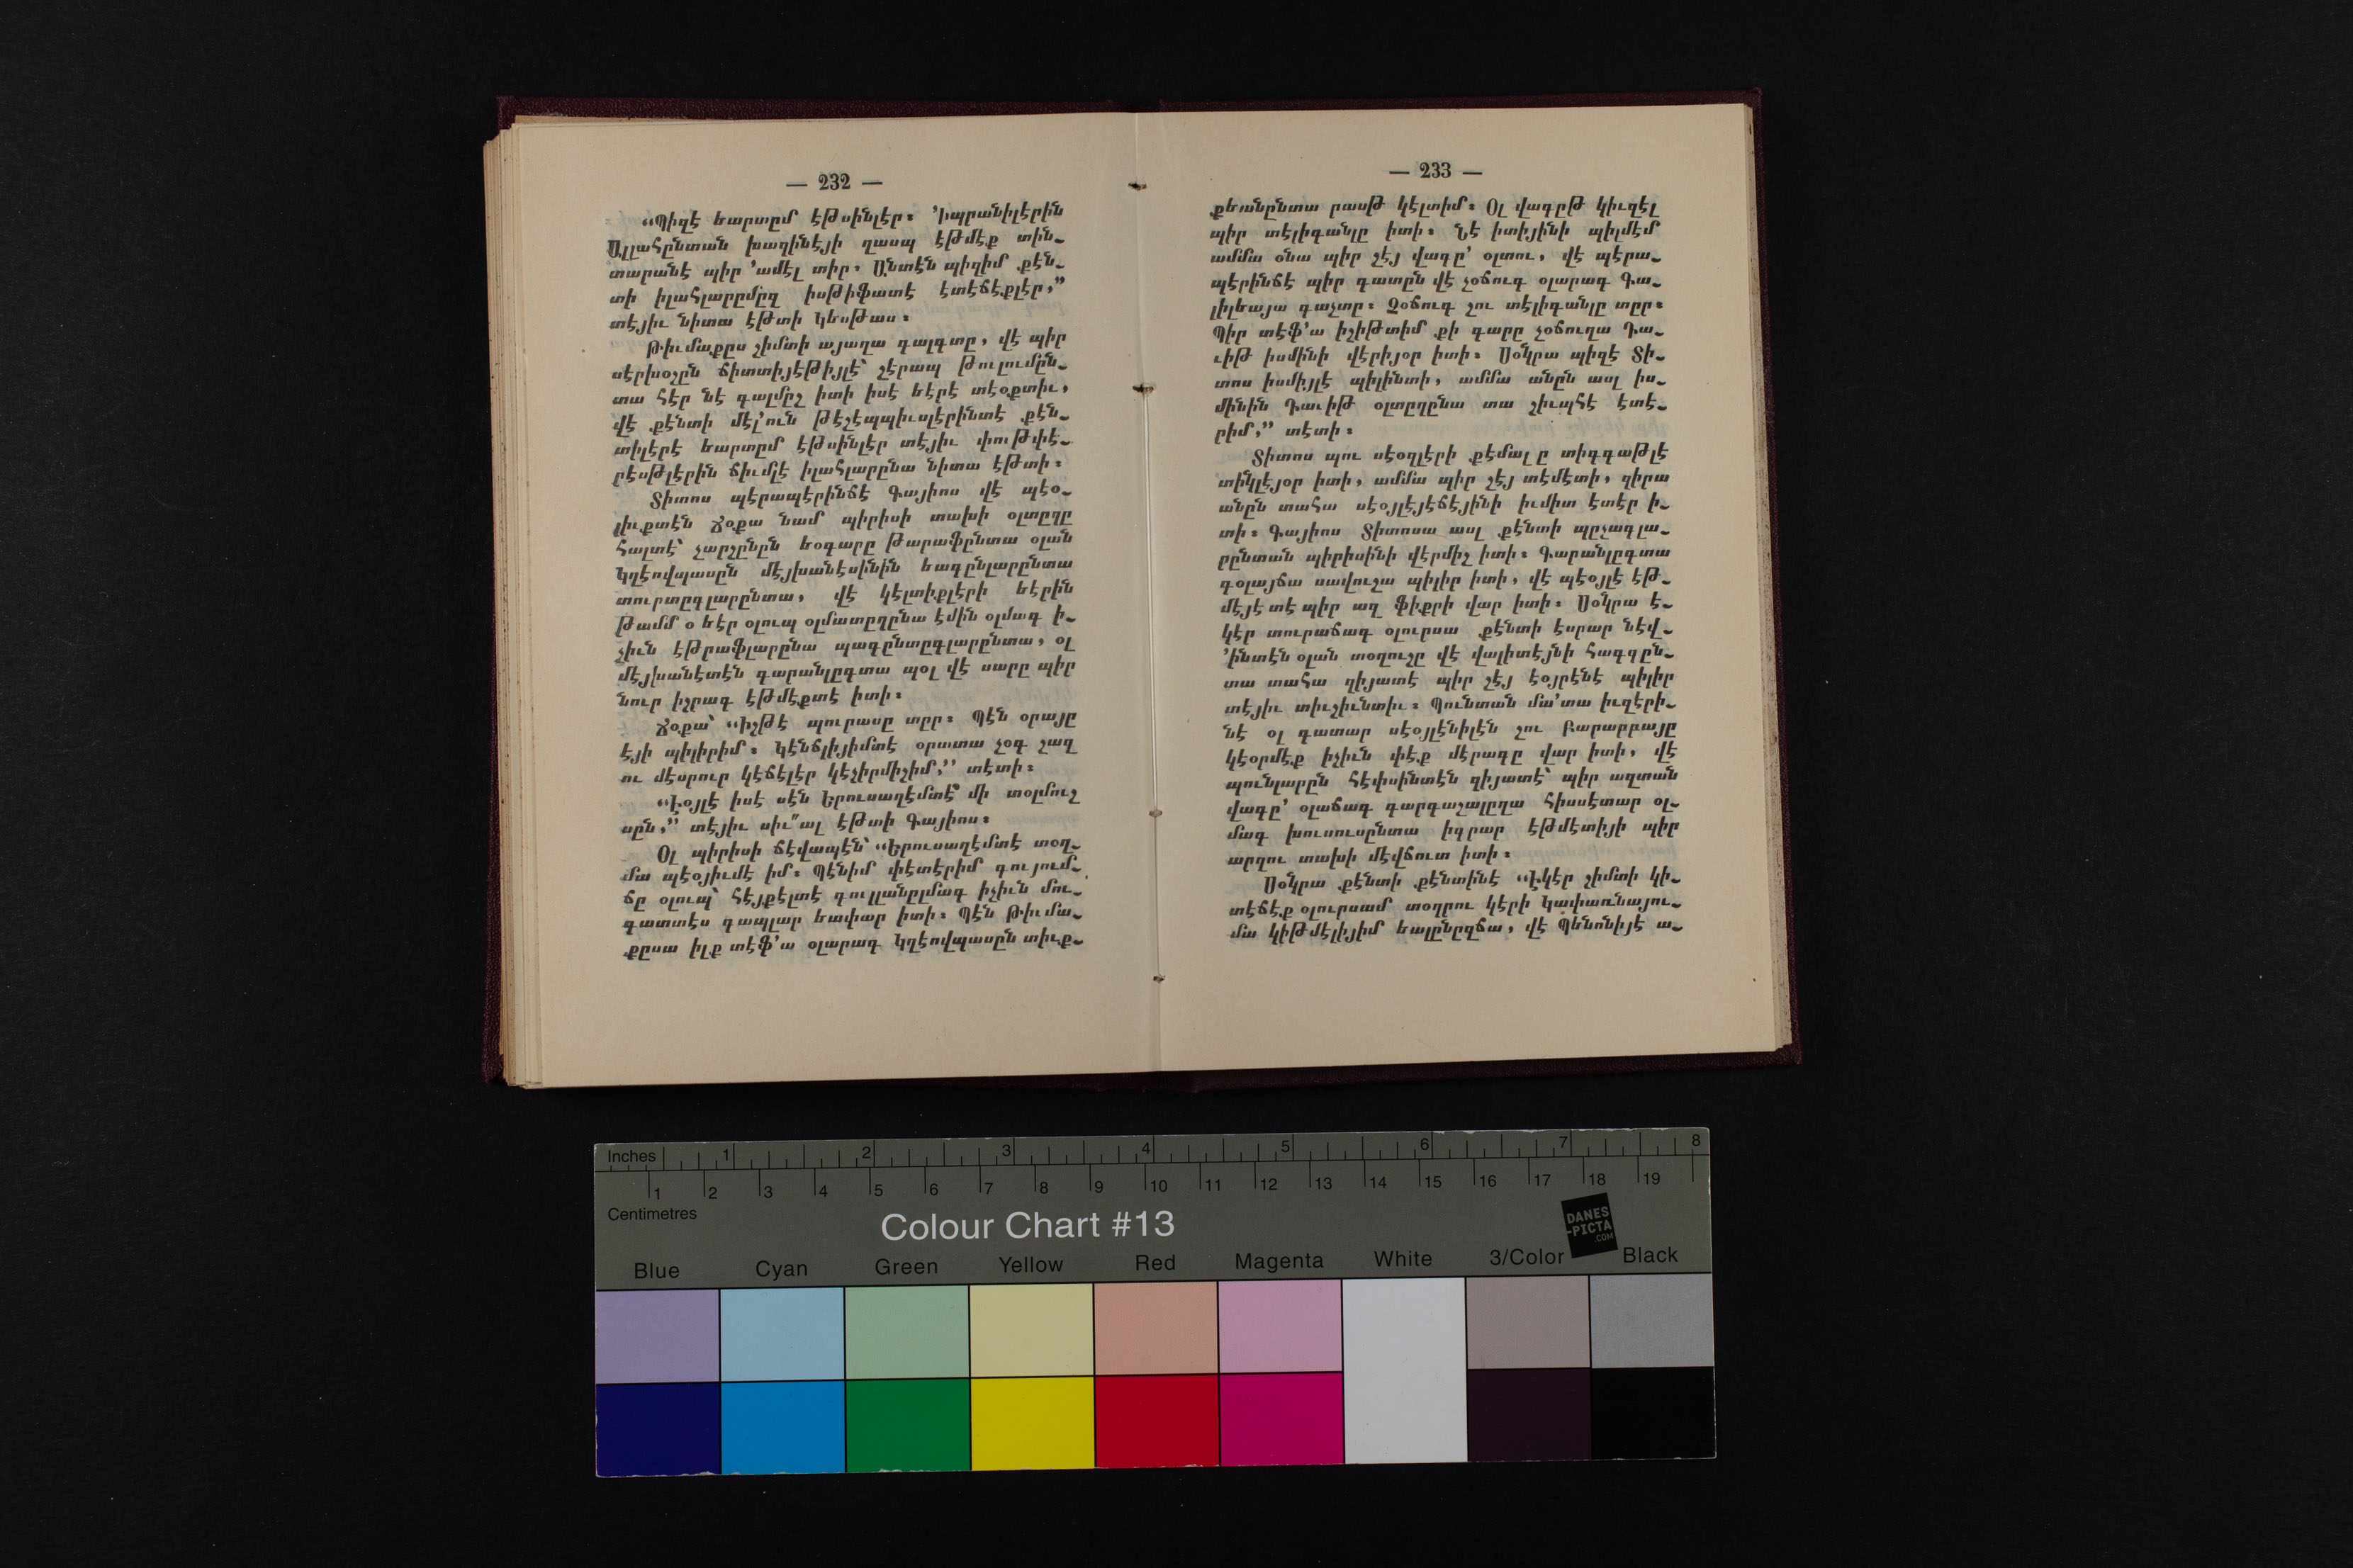 — 232 —
“Պիզէ եարտըմ էթսինլէր։ ’Իպրանիլէրին
Ալլահընտան խազինէյի ղասպ էթմէք տին֊
տարանէ պիր ’ամէլ տիր. Անտէն պիզիմ քէն֊
տի իլահլարըմըզ իսթիֆատէ էտէճէքլէր,”
տէյիւ նիտա էթտի Կեսթաս։
Թիւմաքըս շիմտի այաղա գալգտը, վէ պիր
սէրխօշըն ճիտտիյէթիյլէ՝ շէրապ թուլումըն֊
տա հէր նէ գալմըշ իտի իսէ եէրէ տէօքտիւ,
վէ քէնտի մէլ’ուն թէշէպպիւսլէրինտէ քէն֊
տիլէրէ եարտըմ էթսինլէր տէյիւ փութփէ֊
րէսթլէրին ճիւմլէ իլահլարընա նիտա էթտի։
Տիտոս պէրապէրինճէ Գայիոս վէ պէօ֊
լիւքտէն Ճօքա նամ պիրիսի տախի օլտըղը
հալտէ՝ չարշընըն եօգարը թարաֆընտա օլան
Կղէովպասըն մէյխանէսինին եագընլարընտա
տուրտըգլարընտա, վէ կէլտիքլէրի եէրին
թամմ օ եէր օլուպ օլմատըղընա էմին օլմագ ի֊
չիւն էթրաֆլարընա պագընտըգլարընտա, օլ
մէյխանէտէն գարանլըգտա պօլ վէ սարը պիր
նուր իշրագ էթմէքտէ իտի։
Ճօքա՝ “Իշթէ պուրասը տըր։ Պէն օրայը
էյի պիլիրիմ։ Կէնճլիյիմտէ օրատա չօգ շազ
ու մէսրուր կէճէլէր կէչիրմիշիմ,” տէտի։
“Էօյլէ իսէ սէն Երուսաղէմտէ՞ մի տօլմուշ
սըն,” տէյիւ սիւ՚՚ալ էթտի Գայիոս։
Օլ պիրիսի ճէվապէն՝ “Երուսաղէմտէ տօղ֊
մա պէօյիւմէ իմ։ Պէնիմ փէտէրիմ գույում֊
ճը օլուպ՝ հէյքէլտէ գուլլանըլմագ իչիւն մու֊
գատտէս գապլար եափար իտի։ Պէն Թիւմա֊
քըսա իլք տէֆ’ա օլարագ Կղէովպասըն տիւք֊
— 233 —
քեանընտա րասթ կէլտիմ։ Օլ վագըթ կիւզէլ
պիր տէլիգանլը իտի։ Նէ իտիյինի պիլմէմ
ամմա օնա պիր շէյ վագը’ օլտու, վէ պէրա֊
պէրինճէ պիր գատըն վէ չօճուգ օլարագ Գա֊
լիլեայա գաչտը։ Չօճուգ շու տէլիգանլը տըր։
Պիր տէֆ’ա իշիթտիմ քի գարը չօճուղա Դա֊
ւիթ իսմինի վէրիյօր իտի։ Սօնկրա պիզէ Տի֊
տոս իսմիյլէ պիլինտի, ամմա անըն ասլ իս֊
մինին Դաւիթ օլտըղընա տա շիւպհէ էտէ֊
րիմ,” տէտի։
Տիտոս պու սէօզլէրի քէմալ ը տիգգաթլէ
տինկլէյօր իտի, ամմա պիր շէյ տէմէտի, զիրա
անըն տահա սէօյլէյէճէյինի իւմիտ էտէր ի֊
տի։ Գայիոս Տիտոսա ասլ քէնտի պըչագլա֊
րընտան պիրիսինի վէրմիշ իտի։ Գարանլըգտա
գօլայճա սավուշա պիլիր իտի, վէ պէօյլէ էթ֊
մէյէ տէ պիր ազ ֆիքրի վար իտի։ Սօնկրա է֊
կէր տուրաճագ օլուրսա քէնտի էսրար նէվ֊
’ինտէն օլան տօղուշը վէ վալիտէյնի հագգըն֊
տա տահա զիյատէ պիր շէյ էօյրէնէ պիլիր
տէյիւ տիւշիւնտիւ։ Պունտան մա’տա իւզէրի֊
նէ օլ գատար սէօյլէնիլէն շու Բարաբբայը
կէօրմէք իչիւն փէք մէրագը վար իտի, վէ
պունլարըն հէփսինտէն զիյատէ՝ պիր ազտան
վագը’ օլաճագ գարգաշալըղա հիսսէտար օլ֊
մագ խուսուսընտա իգրար էթմէտիյի պիր
արզու տախի մէվճուտ իտի։
Սօնկրա քէնտի քէնտինէ “Էկէր շիմտի կի֊
տէճէք օլուրսամ տօղրու կէրի Կափառնայու֊
մա կիթմէլիյիմ եալընըզճա, վէ Պենոնիյէ ա֊
Inches 1 2 3 4 5 6 7 8
1 2 3 4 5 6 7 8 9 10 11 12 13 14 15 16 17 18 19
Centimetres
Colour Chart #13
DANES
-PICTA
.COM
Blue Cyan Green Yellow Red Magenta White 3/Color Black